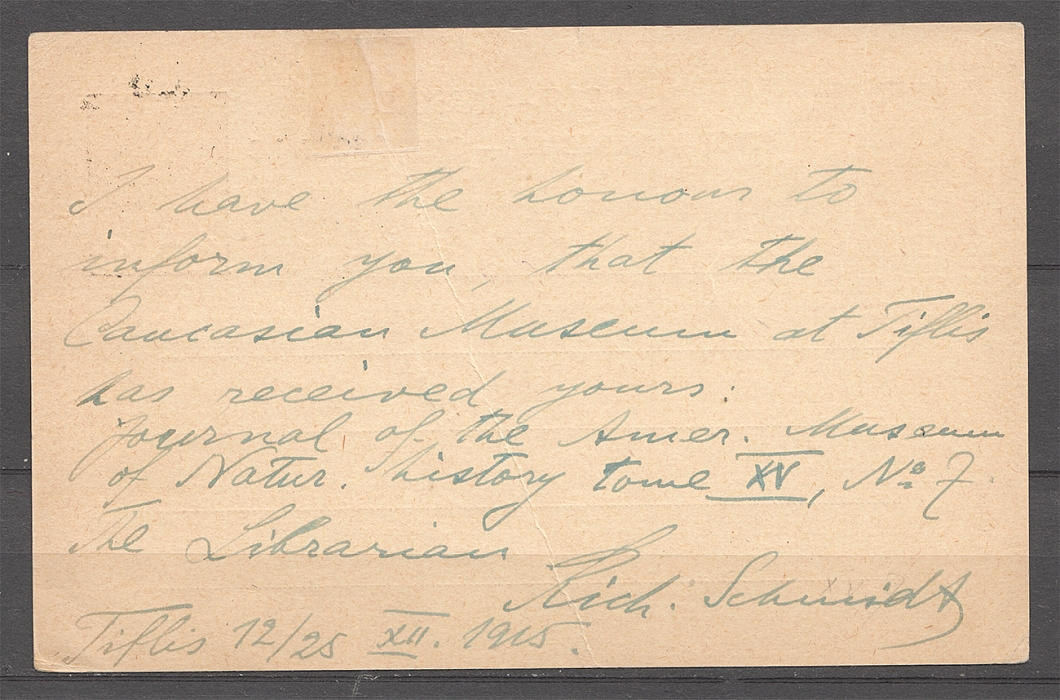 I have the honour to
inform you, that the
Caucasian Museum at Tiflis
has received yours:
Journal of the Amer. Museum
of Natur. history tome XV, № 7
The Librarian
Rich. Schmidt
Tiflis 12/25 XII. 1915.